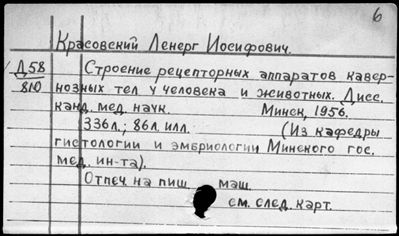 6
Красовский Ленерг Иосифович.
Д58
810
Строение рецепторных аппаратов кавер-
нозных тел у человека и животных. Дисс.
канд. мед. наук. Минск, 1956.
336л.; 86л. илл. (Из кафедры
гистологии и эмбриологии Минского гос.
мед. ин-та).
Отпеч. на пиш. маш.
см. след. карт.